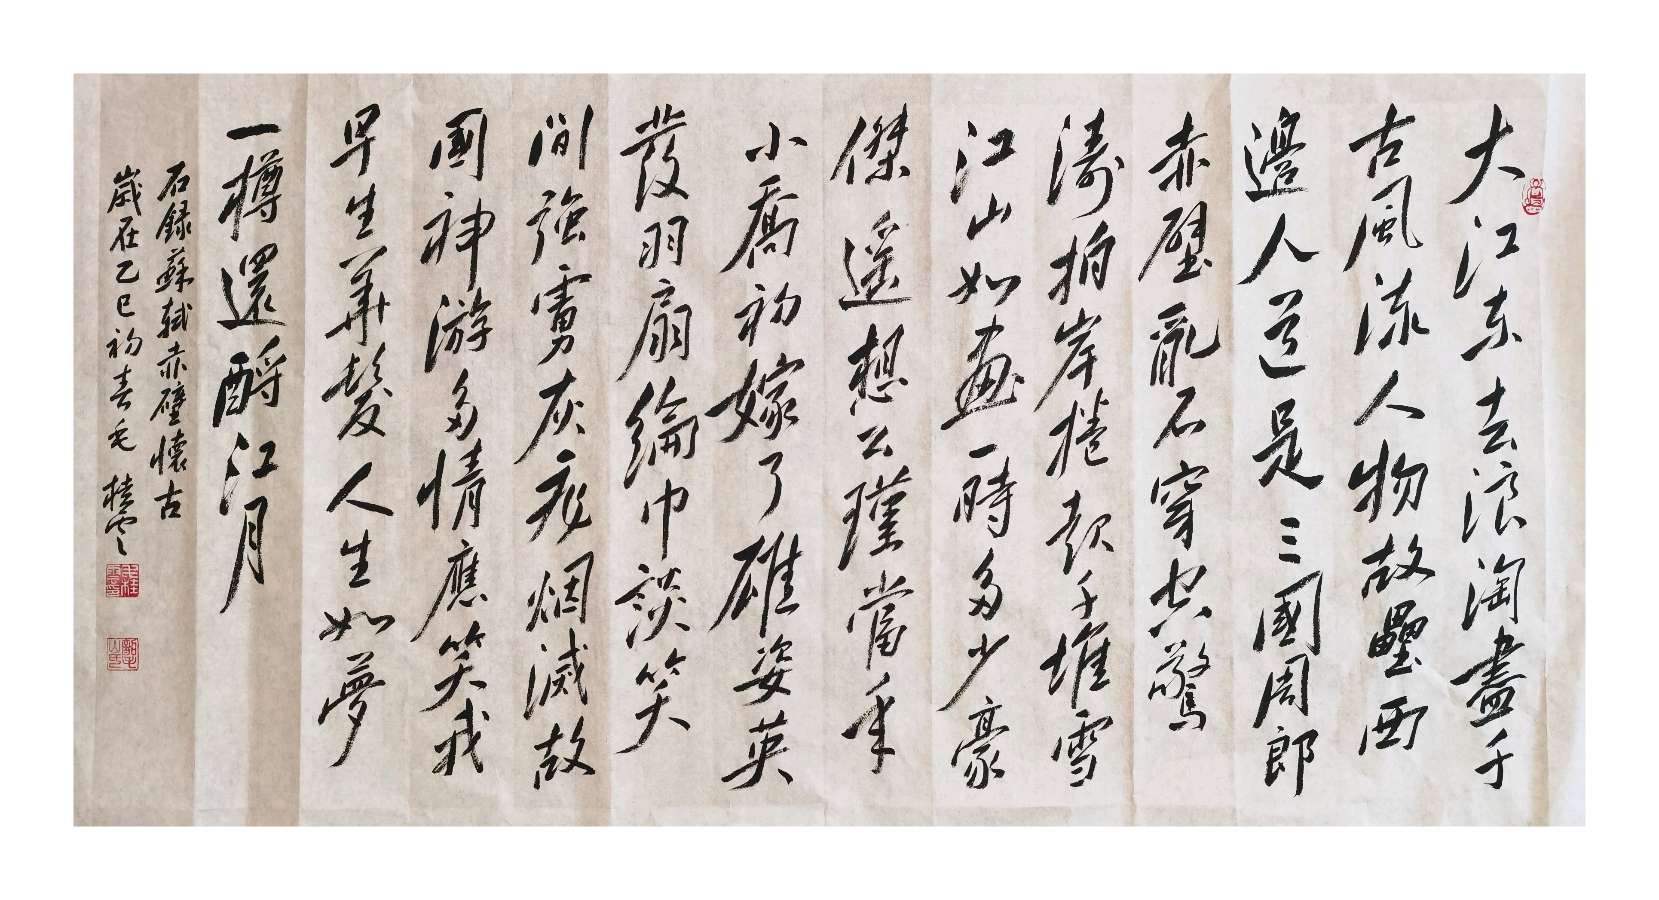 大江东去浪淘盡千
古風流人物故壘西
邊人道是三國周郎
赤壁亂石穿空驚
濤拍岸捲起千堆雪
江山如畫一時多少豪
傑遥想公瑾當年
小喬初嫁了雄姿英
發羽扇綸巾談笑
間強虜灰飛烟滅故
國神游多情應笑我
早生華髮人生如夢
一樽還酹江月
右録蘇軾赤壁懷古
歲在乙巳初春毛桂雲